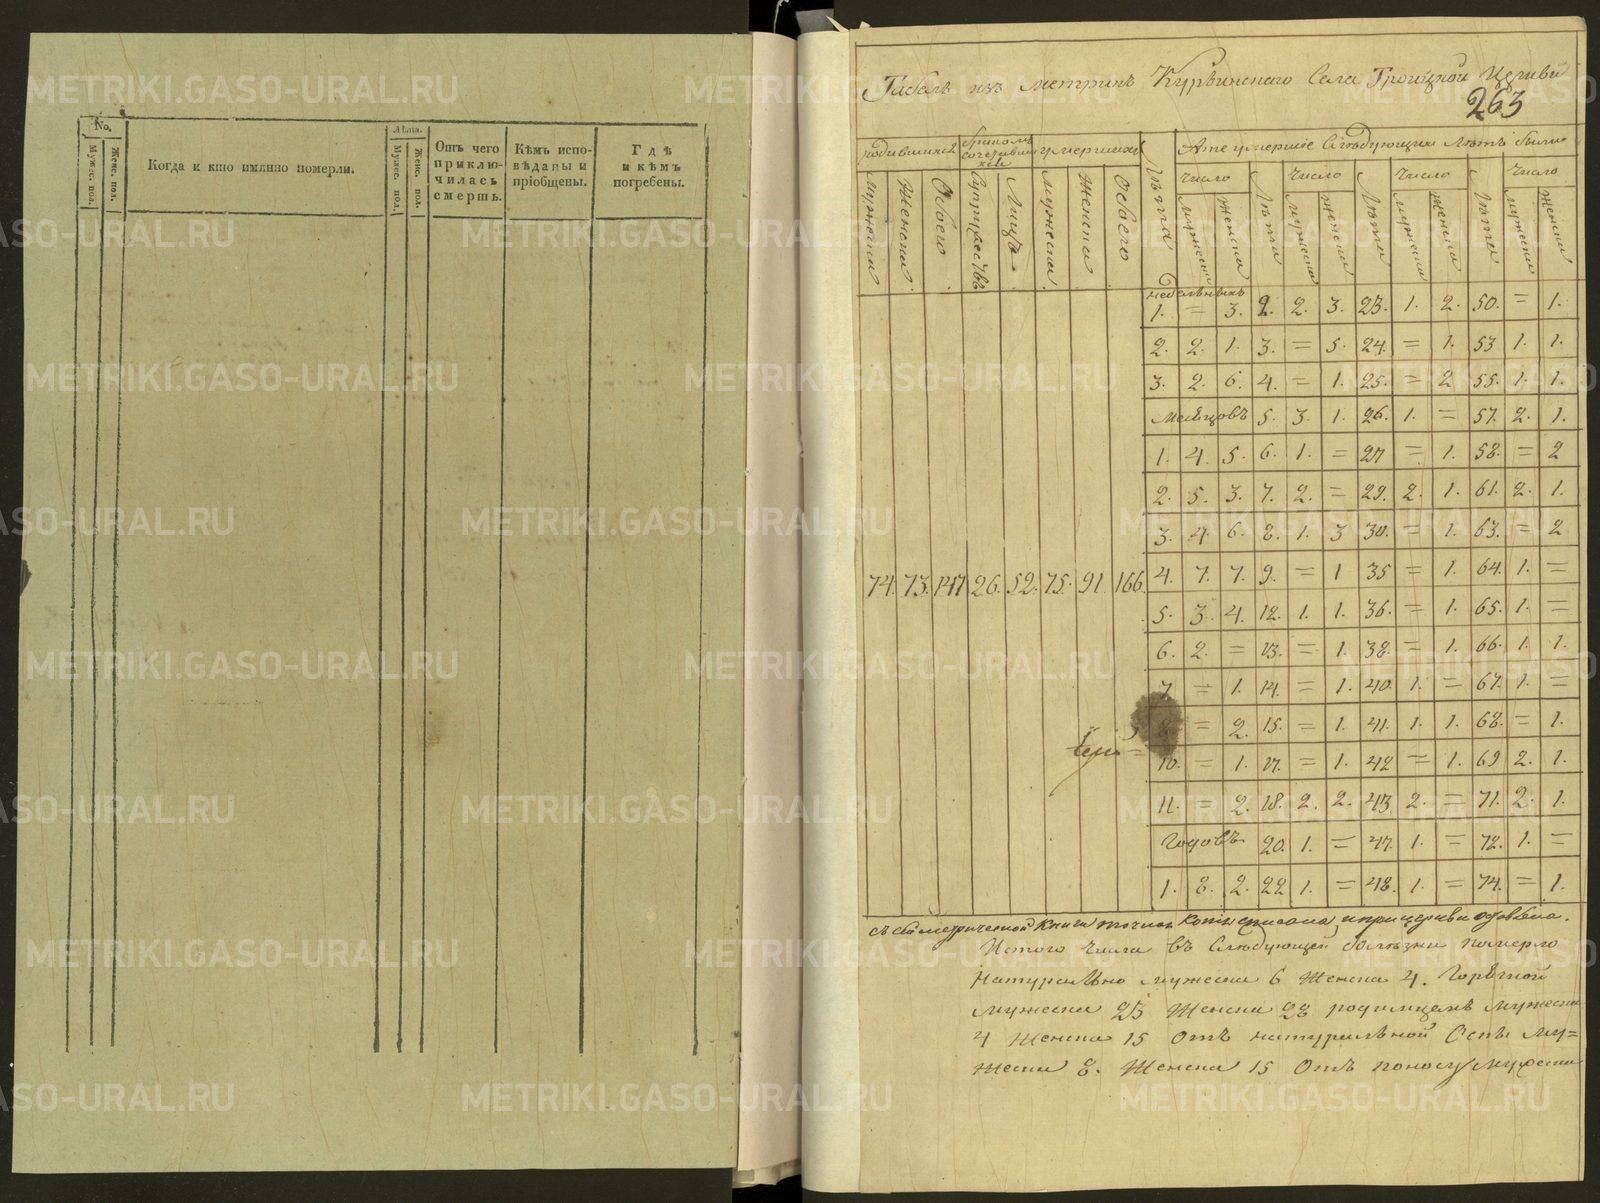 No.
Мужес. пол.
Женс. пол.
Когда и кто имянно померли.
Лѣта.
Мужес. пол.
Женс. пол.
Отъ чего приклю-
чилась
смерть.
Кѣмъ испо-
вѣданы и
пріобщены.
Гдѣ
и кѣмъ
погребены.
Табель изъ метрикъ Курьинскаго Села Троицкой Церкви
263
родившихся
бракомъ
сочетавших
ся
умершихъ
Лѣта
А те умершіе Слѣдующихъ Лѣтъ были
Число Число Число Число
мужеска Женска Обоего Супружествъ Лицъ мужеска Женска Обоего
мужеска женска Лѣта мужеска женска Лѣта мужеска женска Лѣта мужеска женска
недельныхъ
1. = 3. 2. 2. 3. 23. 1. 2. 50. = 1.
2. 2. 1. 3. = 5. 24. = 1. 53 1. 1.
3. 2. 6. 4. = 1. 25. = 2 55. 1. 1.
Месяцовъ 5. 3. 1. 26. 1. = 57. 2. 1.
1. 4. 5. 6. 1. = 27 = 1. 58. = 2
2. 5. 3. 7. 2. = 29. 2. 1. 61. 2. 1.
3. 4. 6. 8. 1. 3 30. = 1. 63. = 2
74. 73. 147 26. 52. 75. 91. 166. 4. 7. 7. 9. = 1 35 = 1. 64. 1. =
5. 3. 4. 12. 1. 1. 36. = 1. 65. 1. =
6. 2. = 13. = 1. 38. = 1. 66. 1. 1.
7 = 1. 14. = 1. 40. 1. = 67. 1. =
8 = 2. 15. = 1. 41. 1. 1. 68. = 1.
10. = 1. 17. = 1. 42 = 1. 69 2. 1.
11. = 2. 18. 2. 2. 43 2. = 71. 2. 1.
Годовъ 20. 1. = 47. 1. = 72. 1. =
1. 8. 2. 22 1. = 48. 1. = 74. = 1.
съ сей метрической Книги точная Копія списана и при церкви оставлена.
Изтого Числа въ Слѣдующей болѣзни померло
Натурально мужеска 6 Женска 4. Горячкой
мужеска 25 Женска 28 родимцемъ мужеска
4 Женска 15 Отъ натуральной Оспы му=
жеска 8. Женска 15 Отъ поносу мужеска
METRIKI.GASO-URAL.RU